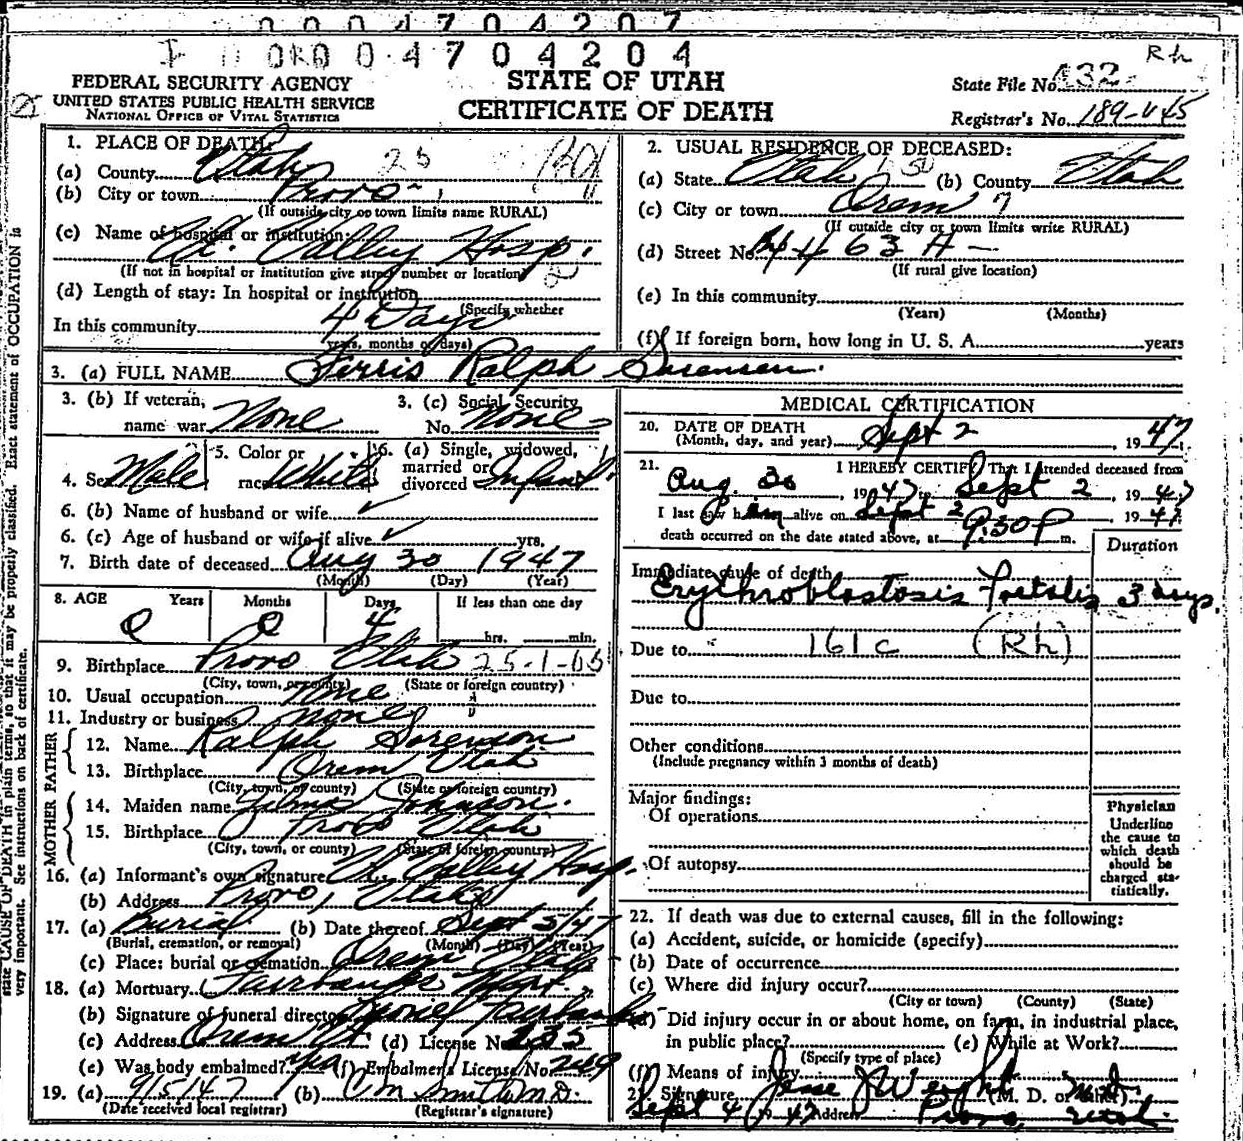 0004704207
0004704204
Rh
FEDERAL SECURITY AGENCY
UNITED STATES PUBLIC HEALTH SERVICE
NATIONAL OFFICE OF VITAL STATISTICS
STATE OF UTAH
CERTIFICATE OF DEATH
State File No. 432
Registrar's No. 189-
1. PLACE OF DEATH:
(a) County Utah 25
(b) City or town Provo
(If outside city or town limits name RURAL)
(c) Name of hospital or institution:
Ut. Valley Hosp.
(If not in hospital or institution give street number or location)
(d) Length of stay: In hospital or institution
(Specify whether
In this community 4 Days
years, months or days)
2. USUAL RESIDENCE OF DECEASED:
(a) State Utah (b) County Utah
(c) City or town Orem
(If outside city or town limits write RURAL)
(d) Street No. 463 A
(If rural give location)
(e) In this community
(Years) (Months)
(f) If foreign born, how long in U. S. A. years
3. (a) FULL NAME Ferris Ralph Sorensen
3. (b) If veteran, name war None
3. (c) Social Security No. None
4. Sex Male
5. Color or race White
6. (a) Single, widowed, married or divorced Infant
6. (b) Name of husband or wife
6. (c) Age of husband or wife if alive yrs.
7. Birth date of deceased Aug 30 1947
(Month) (Day) (Year)
8. AGE Years Months Days If less than one day
0 0 4 hrs. min.
9. Birthplace Provo Utah
(City, town, or county) (State or foreign country)
10. Usual occupation None
11. Industry or business None
FATHER
12. Name Ralph Sorenson
13. Birthplace Orem Utah
(City, town, or county) (State or foreign country)
MOTHER
14. Maiden name Johnson
15. Birthplace Provo Utah
(City, town, or county) (State or foreign country)
16. (a) Informant's own signature Ut. Valley Hosp.
(b) Address Provo, Utah
17. (a) Burial (b) Date thereof Sept 5/47
(Burial, cremation, or removal) (Month) (Day) (Year)
(c) Place: burial or cremation Orem Utah
18. (a) Mortuary Fairbanks Mort.
(b) Signature of funeral director Fairbanks
(c) Address Orem Ut. (d) License No. 235
(e) Was body embalmed? Yes (f) Embalmer's License No. 269
19. (a) 9/5/47 (b) Smith M.D.
(Date received local registrar) (Registrar's signature)
MEDICAL CERTIFICATION
20. DATE OF DEATH
(Month, day, and year) Sept 2 1947
21. I HEREBY CERTIFY, That I attended deceased from
Aug. 30, 1947 to Sept 2, 1947
I last saw him alive on Sept 2 1947
death occurred on the date stated above, at 9:30 P m.
Duration
Immediate cause of death
Erythroblastosis Foetalis 3 days.
Due to 161c (Rh)
Due to
Other conditions
(Include pregnancy within 3 months of death)
Major findings:
Of operations
Of autopsy
Physician
Underline
the cause to
which death
should be
charged sta-
tistically.
22. If death was due to external causes, fill in the following:
(a) Accident, suicide, or homicide (specify)
(b) Date of occurrence
(c) Where did injury occur?
(City or town) (County) (State)
(d) Did injury occur in or about home, on farm, in industrial place,
in public place? (e) While at Work?
(Specify type of place)
(f) Means of injury
23. Signature Jesse J Weight (M. D. or other) M.D.
Sept 4, 1947 Address Provo, Utah
state CAUSE OF DEATH in plain terms, so that it may be properly classified. Exact statement of OCCUPATION is
very important. See instructions on back of certificate.